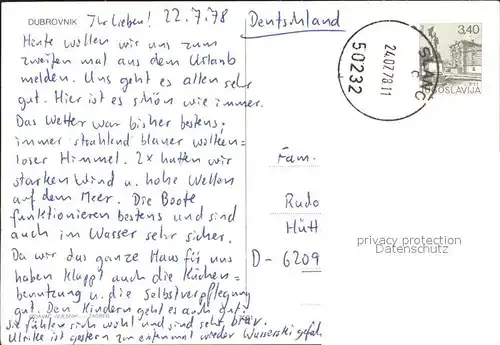 DUBROVNIK
Ihr Lieben! 22.7.78
Deutschland
Heute wollen wir uns zum
zweiten mal aus dem Urlaub
melden. Uns geht es allen sehr
gut. Hier ist es schön wie immer.
Das Wetter war bisher bestens,
immer strahlend blauer wolken=
loser Himmel. 2x hatten wir
starken Wind u. hohe Wellen
auf dem Meer. Die Boote
funktionieren bestens und sind
auch im Wasser sehr sicher.
Da wir das ganze Haus für uns
haben klappt auch die Küchen=
benutzung u. die Selbstverpflegung
gut. Den Kindern geht es auch gut.
Sie fühlen sich wohl und sind sehr brav.
Ulrike ist gestern zum erstenmal wieder Wasserski gefah
3,40
JUGOSLAVIJA
SLANO
24.07.78.11
50232
Fam.
Rudo
Hütt
D-6209
privacy protection
Datenschutz